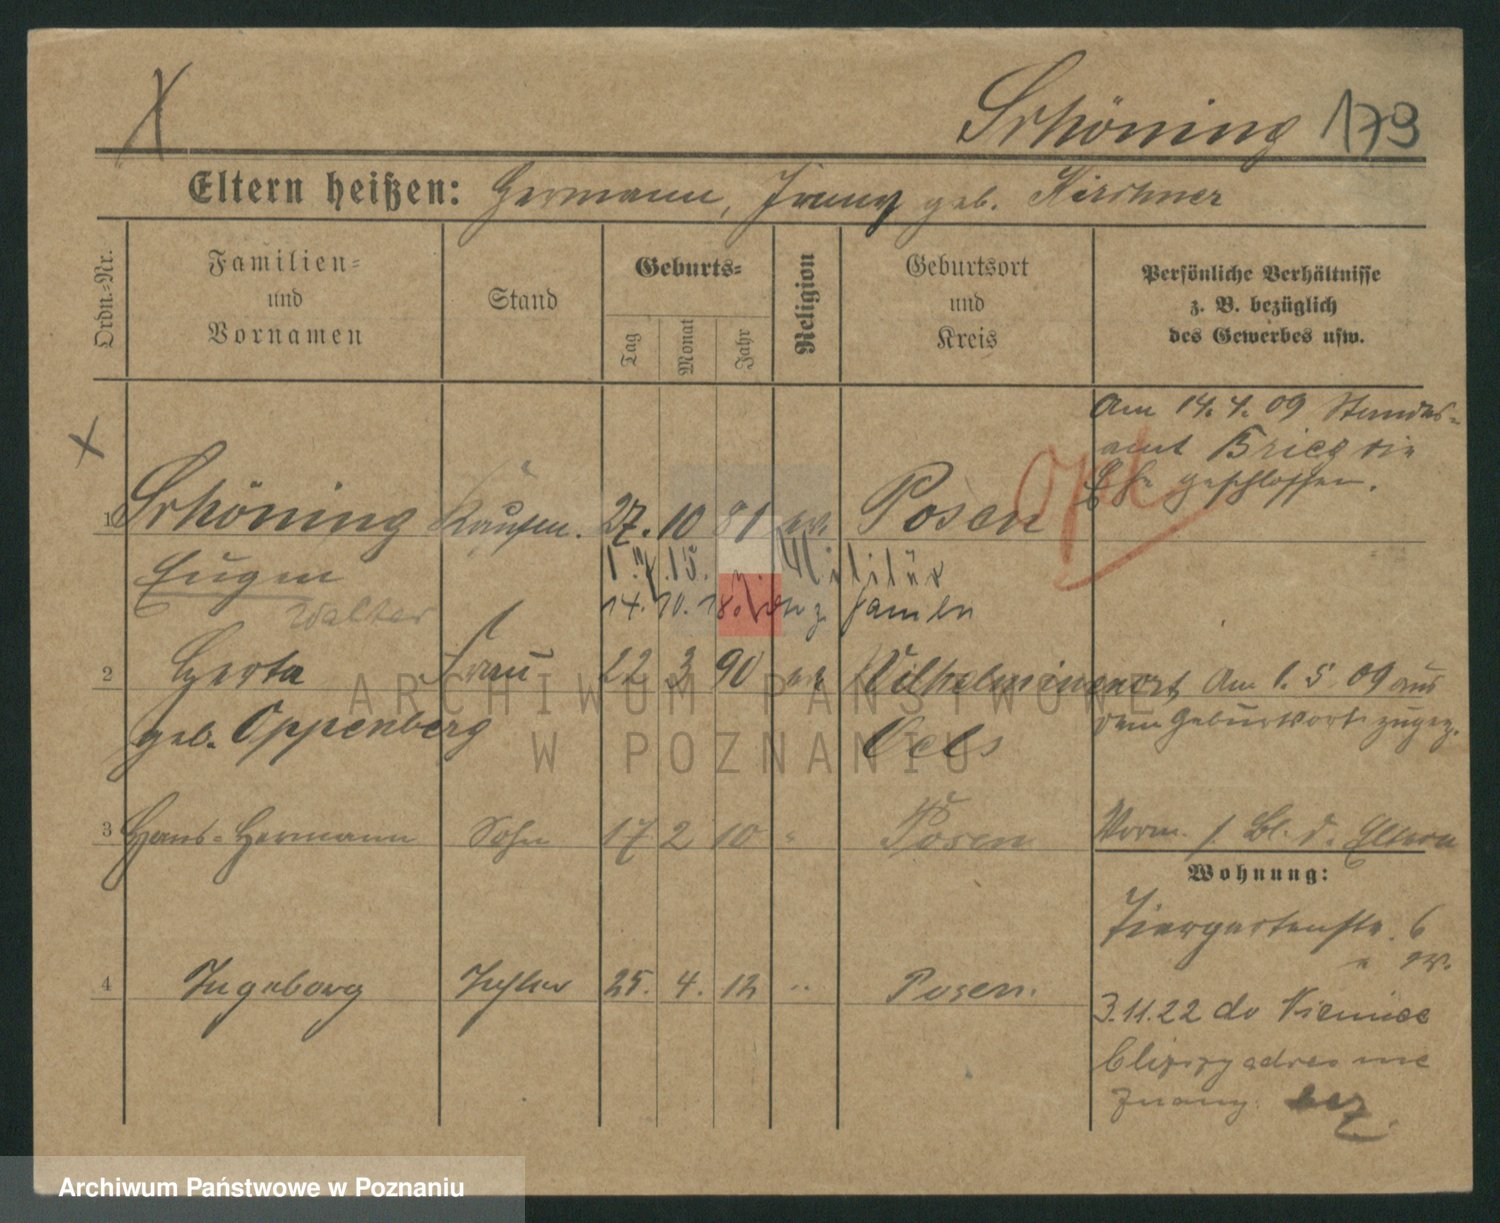 Schöning 179
Eltern heißen: Hermann, Jenny geb. Kirschner
Ordn.-Nr.
Familien-
und
Vornamen
Stand
Geburts-
Tag
Monat
Jahr
Religion
Geburtsort
und
Kreis
Persönliche Verhältnisse
z. B. bezüglich
des Gewerbes usw.
Am 14. 4. 09 Standes-
amt Brieg die
Ehe geschlossen.
1 Schöning Kaufm. 27. 10 81 ev. Posen
Eugen
Walter
z. Militär
14. 10. 18.
2 Herta Frau 22 3 90 ev Wilhelminenort Am 1. 5 09 aus
geb. Oppenberg Oels dem Geburtsort zugez.
3 Hans-Hermann Sohn 17 2 10 " Posen Verm. s. Bl. d. Eltern
Wohnung:
Tiergartenstr. 6
4 Ingeborg Tochter 25. 4. 12 " Posen.
3.11.22 do Niemiec
bliższy adres nie
znany.
ARCHIWUM PAŃSTWOWE
W POZNANIU
Archiwum Państwowe w Poznaniu